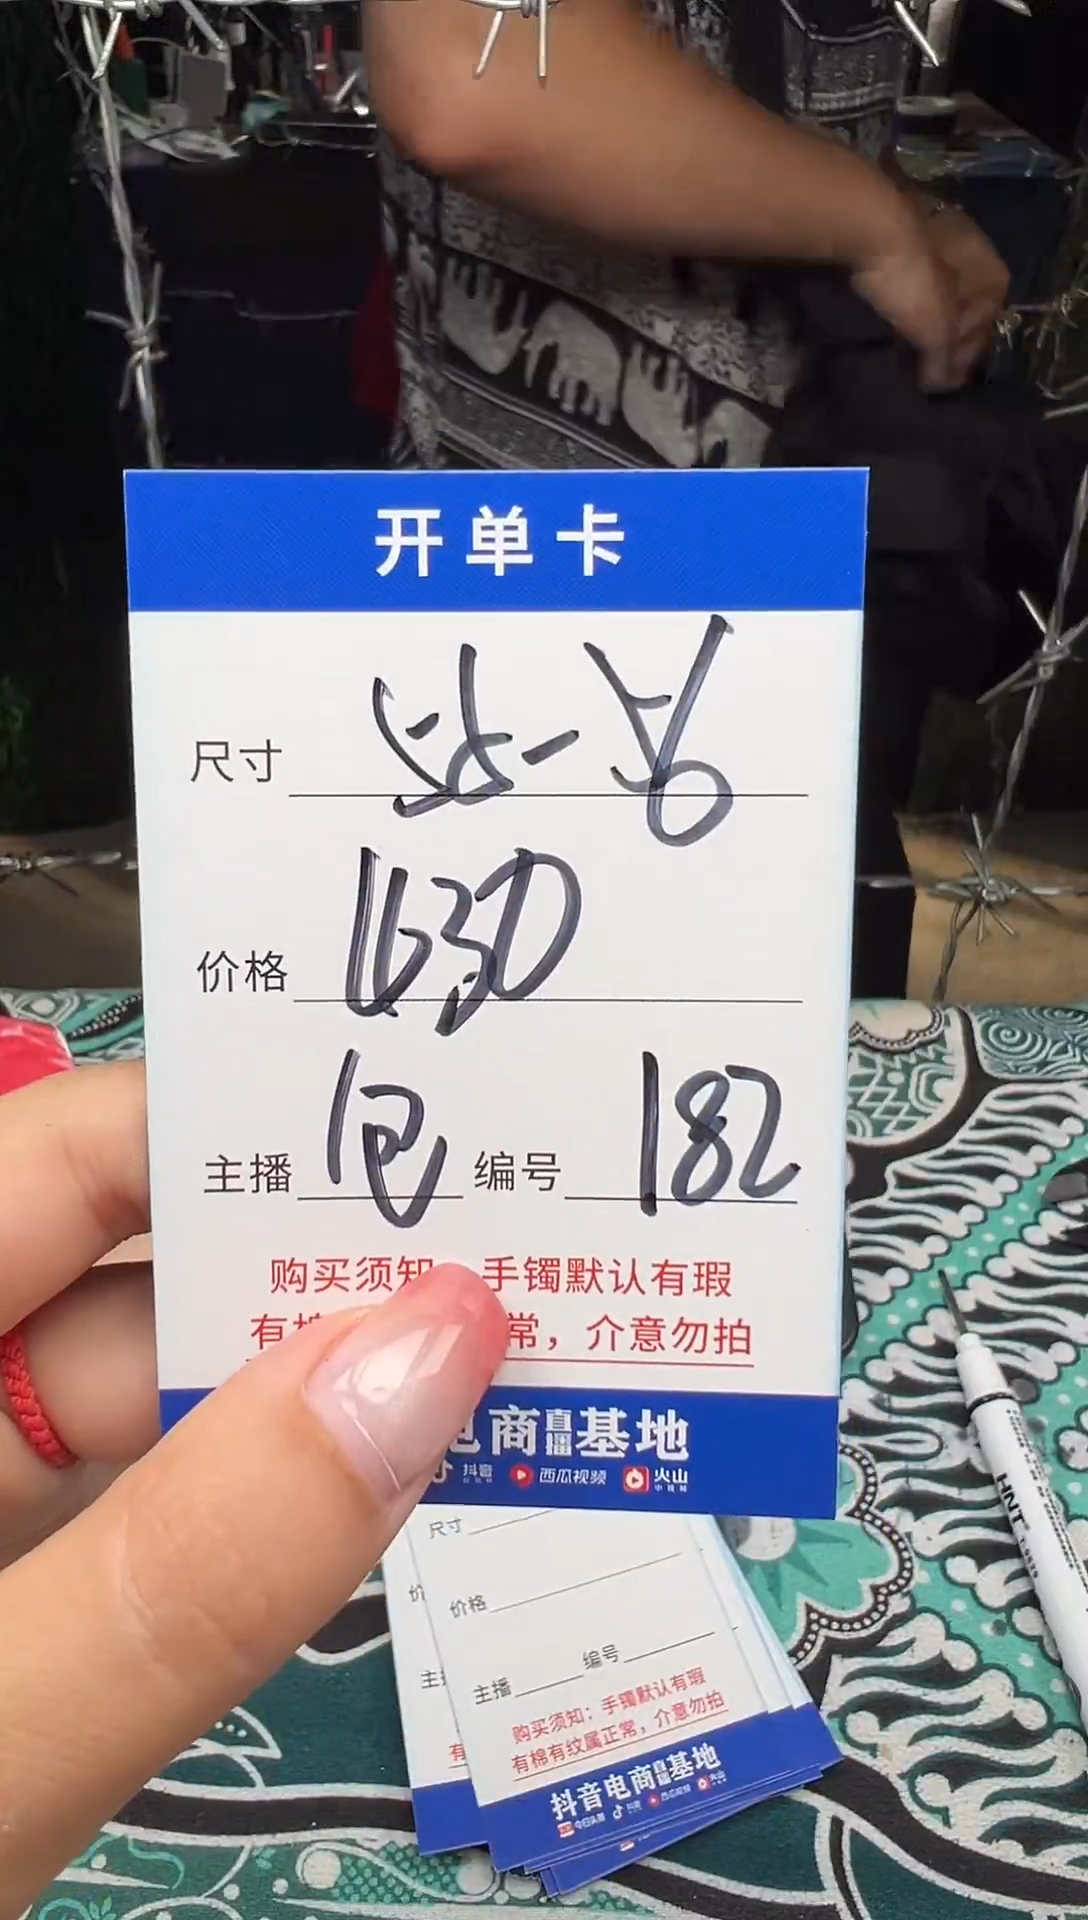 开单卡
尺寸 55-56
价格 1630
主播 包 编号 182
购买须知 手镯默认有瑕
有 常，介意勿拍
电商直播基地
抖音 西瓜视频 火山
尺寸
价格
主播 编号
购买须知：手镯默认有瑕
有棉有纹属正常，介意勿拍
抖音电商直播基地
今日头条 抖音 西瓜视频 火山
HNT